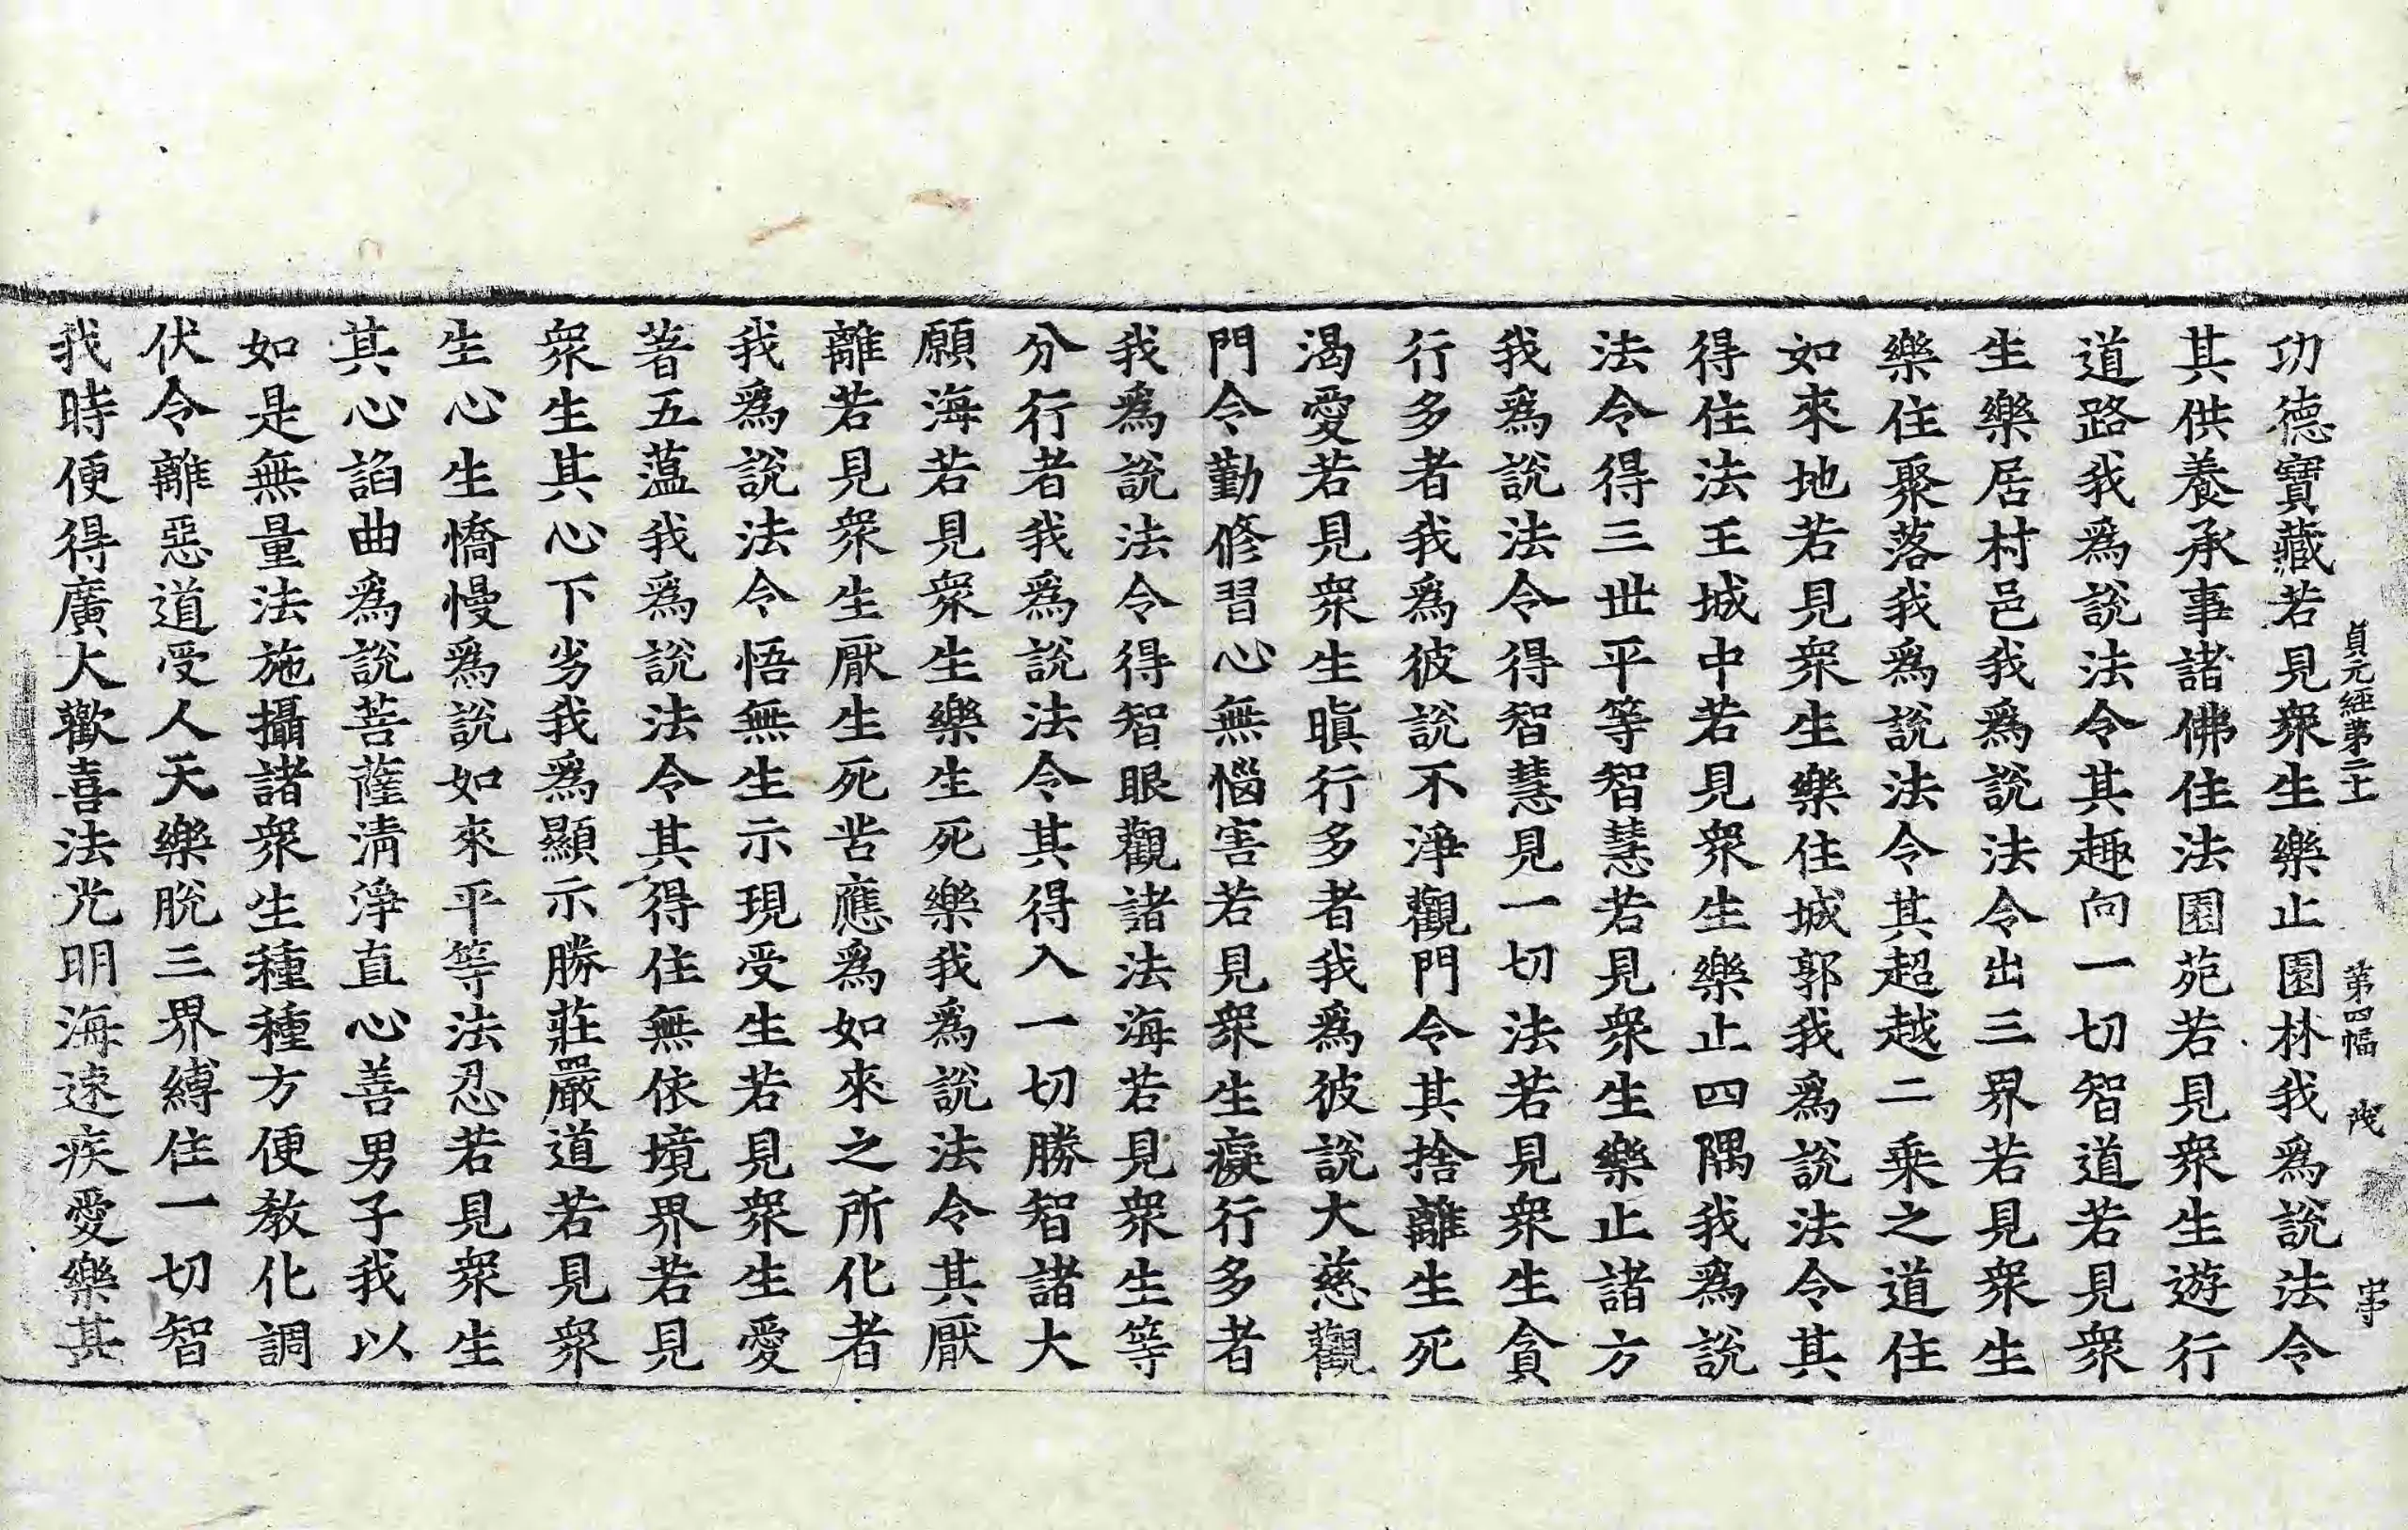 貞元經第二十 第四幅 茂 守
功德寶藏若見衆生樂止園林我爲說法令
其供養承事諸佛住法園苑若見衆生遊行
道路我爲說法令其趣向一切智道若見衆
生樂居村邑我爲說法令出三界若見衆生
樂住聚落我爲說法令其超越二乘之道住
如來地若見衆生樂住城郭我爲說法令其
得住法王城中若見衆生樂止四隅我爲說
法令得三世平等智慧若見衆生樂止諸方
我爲說法令得智慧見一切法若見衆生貪
行多者我爲彼說不淨觀門令其捨離生死
渴愛若見衆生瞋行多者我爲彼說大慈觀
門令勤修習心無惱害若見衆生癡行多者
我爲說法令得智眼觀諸法海若見衆生等
分行者我爲說法令其得入一切勝智諸大
願海若見衆生樂生死樂我爲說法令其厭
離若見衆生厭生死苦應爲如來之所化者
我爲說法令悟無生示現受生若見衆生愛
著五蘊我爲說法令其得住無依境界若見
衆生其心下劣我爲顯示勝莊嚴道若見衆
生心生憍慢爲說如來平等法忍若見衆生
其心諂曲爲說菩薩淸淨直心善男子我以
如是無量法施攝諸衆生種種方便教化調
伏令離惡道受人天樂脫三界縛住一切智
我時便得廣大歡喜法光明海速疾愛樂其